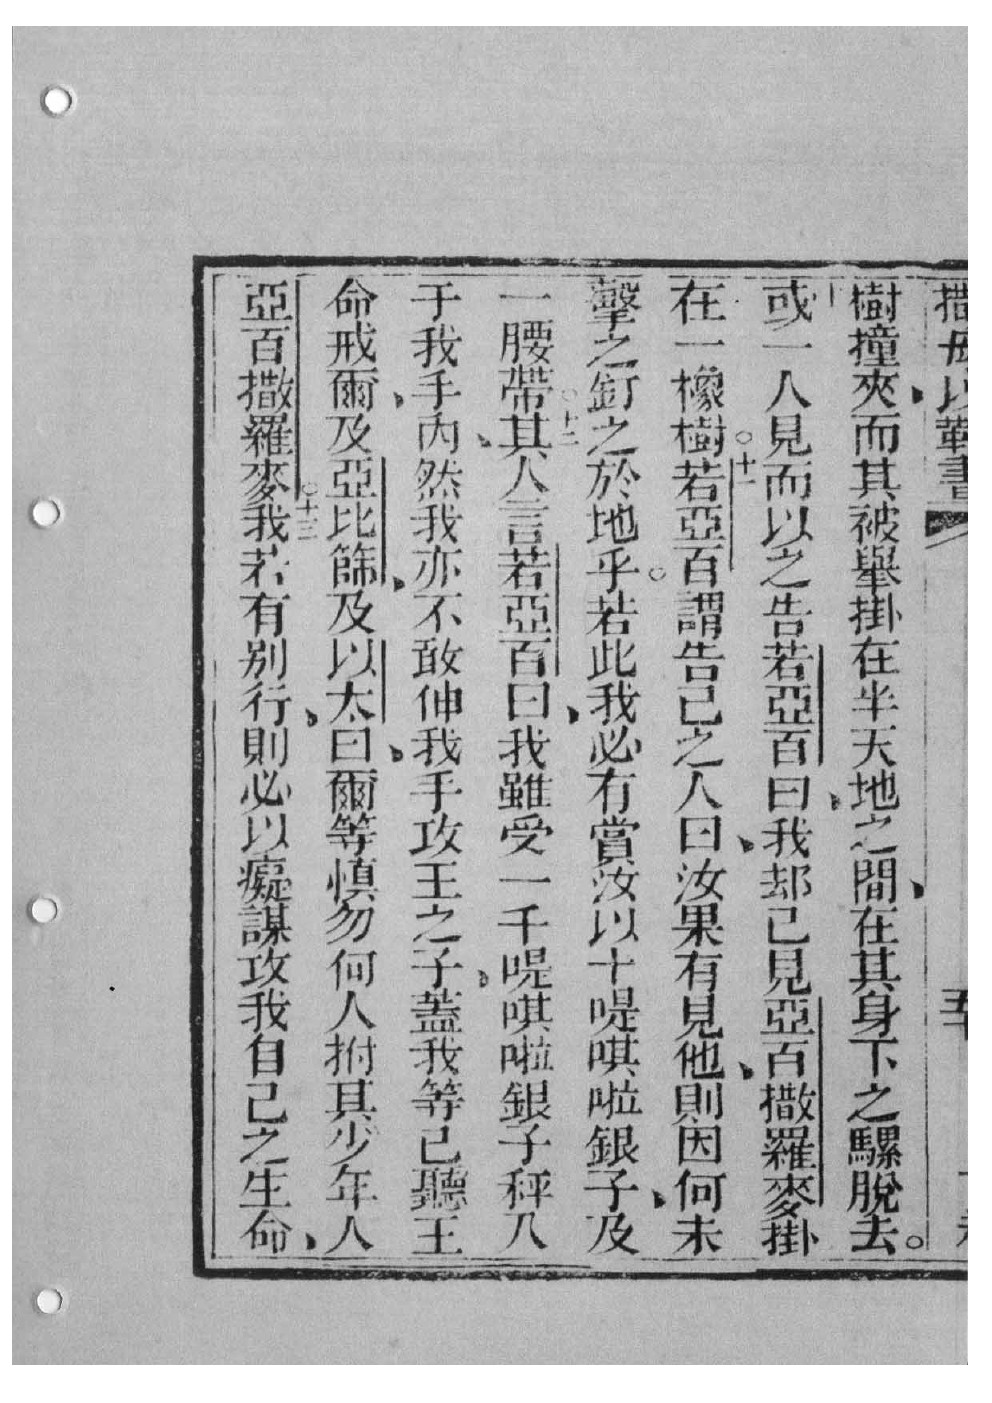 撒母以
樹撞夾而其被舉掛在半天地之間在其身下之騾脫去。
或一人見而以之告若亞百曰我却已見亞百撒羅麥掛
在一橡樹○十一若亞百謂告已之人曰汝果有見他則因何未
擊之釘之於地乎○若此我必有賞汝以十㖷唭啦銀子及
一腰帶○十二其人言若亞百曰我雖受一千㖷唭啦銀子秤入
于我手內然我亦不敢伸我手攻王之子蓋我等已聽王
命戒爾及亞比篩及以太曰爾等慎勿何人拊其少年人
亞百撒羅麥○十三我若有別行則必以癡謀攻我自己之生命